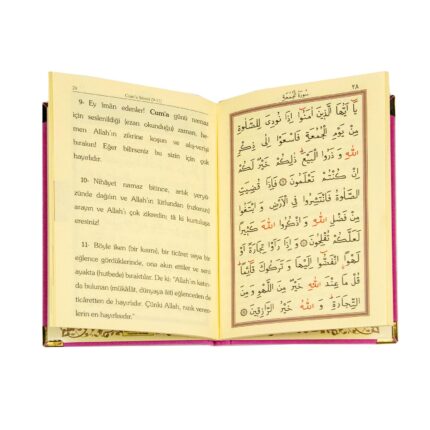 Cum'a Sûresi (9-11)
9- Ey îmân edenler! Cum'a günü namaz
için seslenildiği (ezan okunduğu) zaman, he-
men Allah'ın zikrine koşun ve alış-verişi
bırakın! Eğer bilirseniz bu sizin için çok
hayırlıdır.
10- Nihâyet namaz bitince, artık yeryü-
zünde dağılın ve Allah'ın lütfundan (rızkınızı)
arayın ve Allah'ı çok zikredin; tâ ki kurtuluşa
eresiniz!
11- Böyle iken (bir kısmı), bir ticâret veya bir
eğlence gördüklerinde, ona akın ettiler ve seni
ayakta (hutbede) bıraktılar. De ki: "Allah'ın katın-
da bulunan (mükâfât, dünyaya âit) eğlenceden de
ticâretten de hayırlıdır. Çünki Allah, rızık veren-
lerin en hayırlısıdır."
٢٨
سُورَةُ الْجُمُعَةِ
يَا اَيُّهَا الَّذ۪ينَ اٰمَنُٓوا اِذَا نُودِيَ لِلصَّلٰوةِ
مِنْ يَوْمِ الْجُمُعَةِ فَاسْعَوْا اِلٰى ذِكْرِ
اللّٰهِ وَ ذَرُوا الْبَيْعَۜ ذٰلِكُمْ خَيْرٌ لَكُمْ
اِنْ كُنْتُمْ تَعْلَمُونَ ۞ فَاِذَا قُضِيَتِ
الصَّلٰوةُ فَانْتَشِرُوا فِي الْاَرْضِ وَ ابْتَغُوا
مِنْ فَضْلِ اللّٰهِ وَ اذْكُرُوا اللّٰهَ كَث۪يرًا
لَعَلَّكُمْ تُفْلِحُونَ ۞ وَ اِذَا رَاَوْا تِجَارَةً اَوْ
لَهْوًاۨ انْفَضُّٓوا اِلَيْهَا وَ تَرَكُوكَ قَٓائِمًاۜ
قُلْ مَا عِنْدَ اللّٰهِ خَيْرٌ مِنَ اللَّهْوِ وَ مِنَ
التِّجَارَةِۜ وَ اللّٰهُ خَيْرُ الرَّازِق۪ينَ ۞